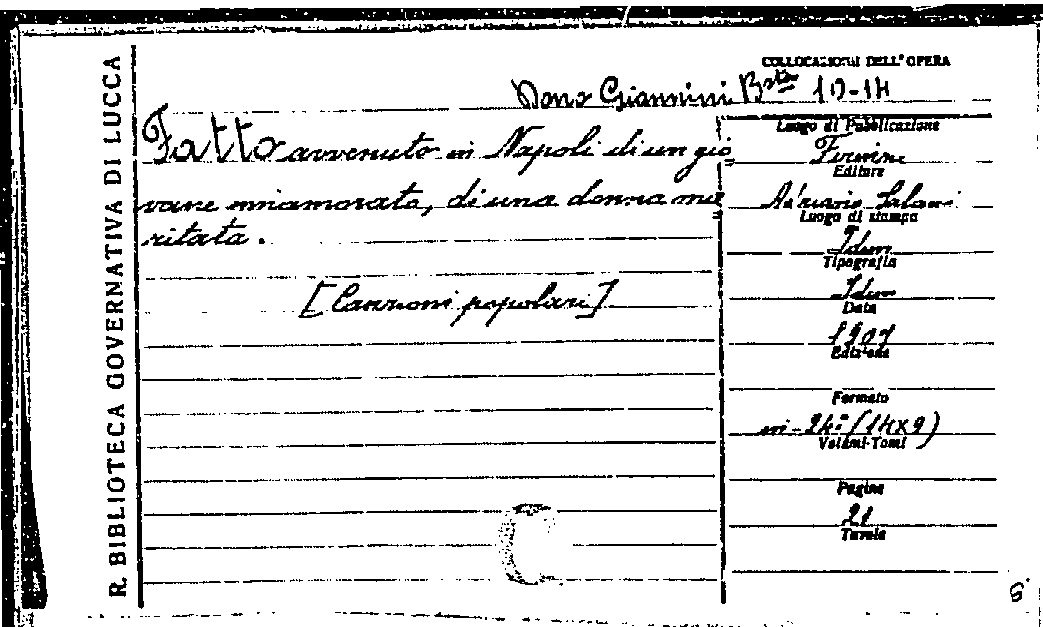 R. BIBLIOTECA GOVERNATIVA DI LUCCA
COLLOCAZIONI DELL'OPERA
Dono Giannini B.sta 10-14
Fatto avvenuto in Napoli di un gio=
vane innamorato, di una donna ma=
ritata.
[Canzoni popolari]
Luogo di Pubblicazione
Firenze
Editore
Adriano Salani
Luogo di stampa
Idem
Tipografia
Idem
Data
1907
Edizione
Formato
in-24º (14x9)
Volumi-Tomi
Pagine
21
Tavole